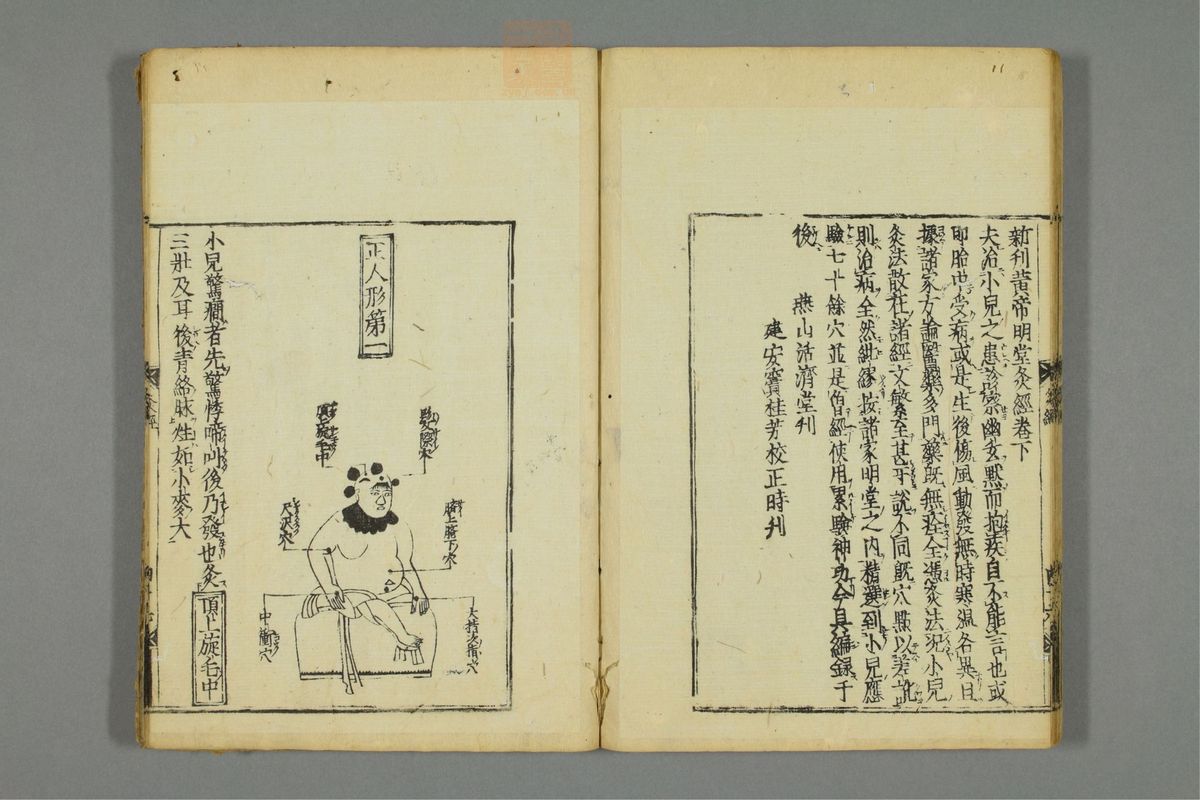 新刋黄帝明堂灸經卷下
夫治小兒之患診察幽玄默而抱疾自不能言也或
即胎中受病或是生後傷風動發無時寒温各異且
據諸家方論醫藥多門藥旣無痊全憑灸法況小兒
灸法散在諸經文繁至甚互說不同旣穴點以差訛
則治病全然紕繆按諸家明堂之内精選到小兒應
驗七十餘穴並是曾經使用累驗神功今具編録于
後
燕山活濟堂刋
建安竇桂芳校正時刋
正人形第一
頂上旋毛中
尺沢穴
臍上臍下穴
中衝穴
大指次指穴
小兒驚癇者先驚悸啼叫後乃發也灸頂上旋毛中
三壯及耳後青絡脉炷如小麥大